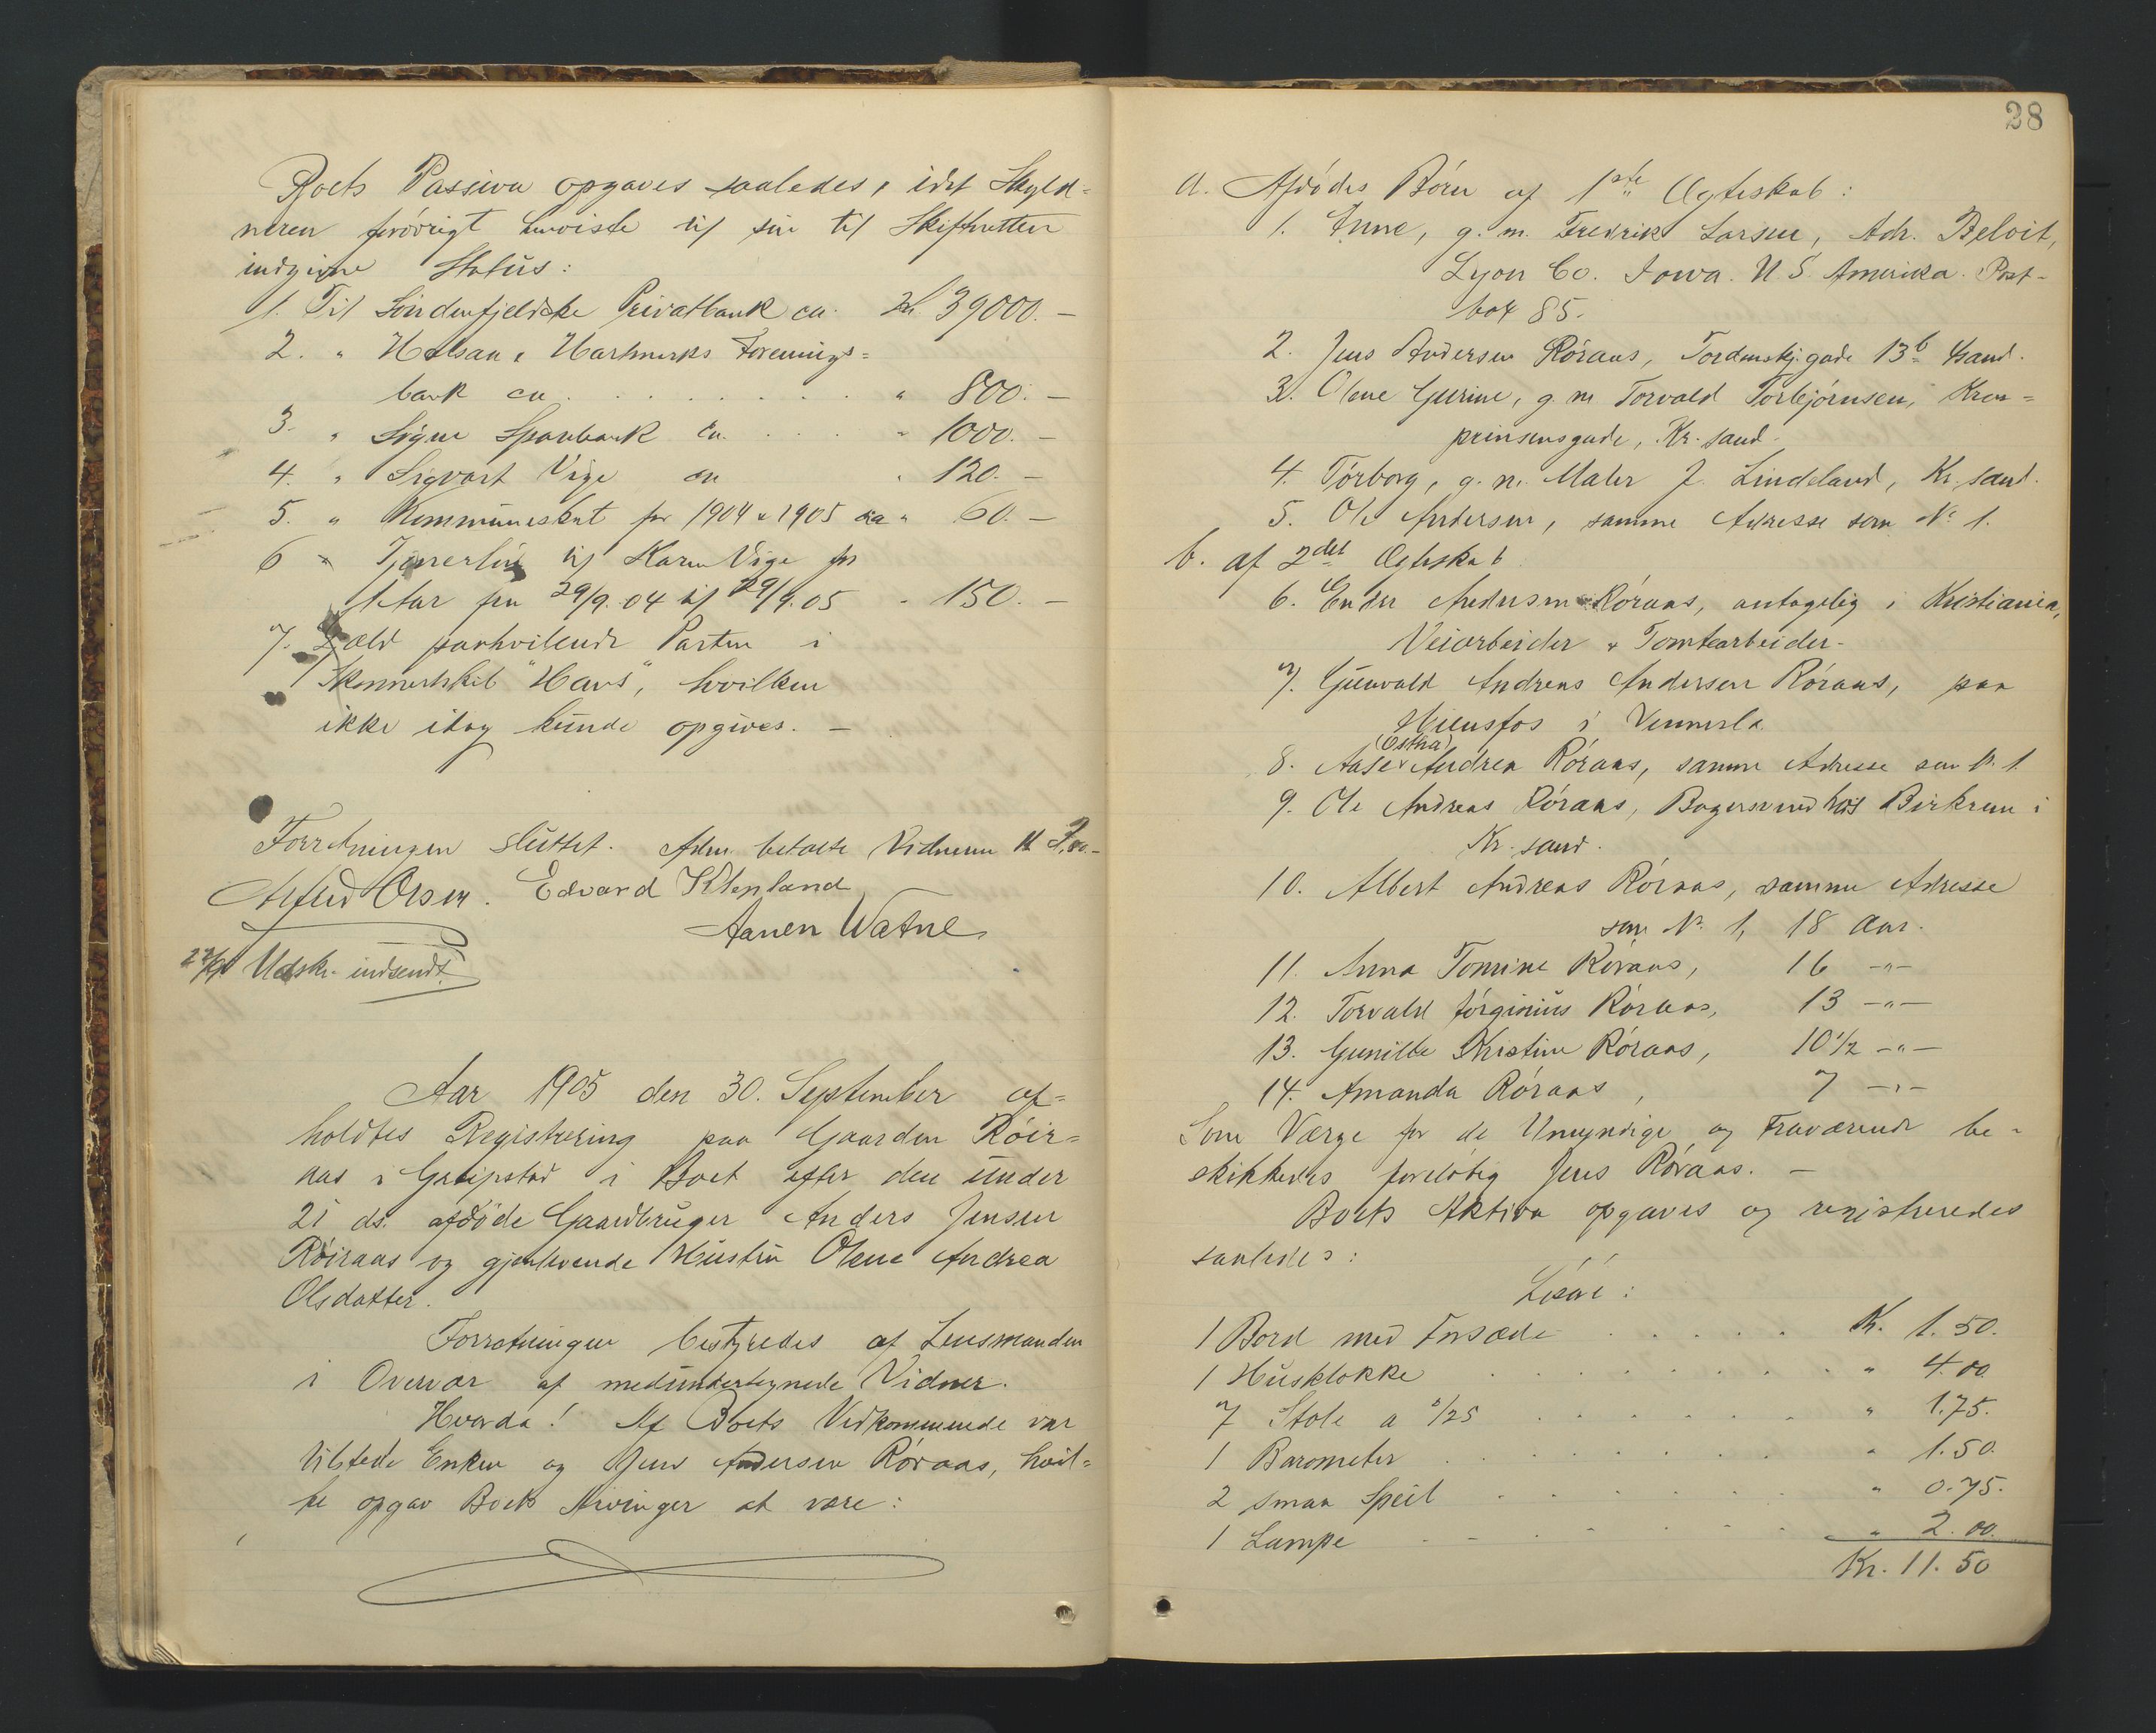 Boets Passiva opgaves saaledes, idet Skyld-
neren forövrigt henviste til sin til Skifteretten
indgivne Status:
1. Til Söndenfjeldske Privatbank ca. Kr 39000.-
2. " Halsaa & Hartmarks Forenings-
bank ca. . . . . . . . . " 800.-
3. " Sögne Sparebank ca. . . . . " 1000.-
4. " Sigvart Vige ca " 120.-
5. " Kommuneskat for 1904 & 1905 ca " 60.-
6 " Tjenerlön til Karen Vige for
1 Aar fra 29/9. 04 til 29/9. 05 " 150.-
7. Gjæld paahvilende Parten i
Skonnertskib "Havs", hvilken
ikke idag kunde opgives. -
Forretningen sluttet. Adm. betalte Vidnerne
Alfred Olsen. Edvard Klepland
Aanen Watne
Udskr. indsendt.
Aar 1905 den 30. September af-
holdtes Registrering paa Gaarden Röir-
aas i Greipstad i Boet efter den under
21 ds. afdöde Gaardbruger Anders Jensen
Röiraas og gjenlevende Hustru Olene Andrea
Olsdatter.
Forretningen bestyredes af Lensmanden
i Overvær af medundertegnede Vidner.
Hvorda! Af Boets Vedkommende var
tilstede Enken og Jens Andersen Röraas, hvil-
ke opgav Boets Arvinger at være:
28
a. Afdödes Börn af 1ste Ægteskab:
1. Enne, g. m. Fredrik Larsen, Adr. Beloit,
Lyon Co. Iowa. U. S. Amerika. Post-
box 85.
2. Jens Andersen Röraas, Tordenskj.gade 13b Krsand.
3. Olene Gurine, g. m Torvald Torbjörnsen, Kron-
prinsensgade, Kr.sand.
4. Törborg, g. m. Maler J. Lindeland, Kr.sand.
5. Ole Andersen, samme Adresse som No 1.
b. af 2det Ægteskab
6. Ender Andersen Röraas, antagelig i Kristiania,
Veiarbeider & Tomtearbeider.
7. Gunvald Andreas Andersen Röraas, paa
Hunsfos i Vennesla
(Ostna)
8. Aase Andrea Röraas, samme Adresse som No. 1.
9. Ole Andreas Röraas, Bagersvend hos Birkrem i
Kr.sand.
10. Albert Andreas Röraas, samme Adresse
som No. 1, 18 Aar.
11. Anna Tomine Röraas, 16 -"-
12. Torvald Törginius Röraas, 13 -"-
13. Gunille Kristine Röraas, 10 1/2 -"-
14. Amanda Röraas, 7 -"-
Som Værge for de Umyndige og Fraværende be-
skikkedes forelöbig Jens Röraas. -
Boets Aktiva opgaves og registreredes
saaledes:
Lösöre:
1 Bord med Forsæde . . . . . Kr. 1.50.
1 Husklokke . . . . . . . " 4.00
7 Stole a 0/25 . . . . . . " 1.75.
1 Barometer . . . . . . " 1.50.
2 smaa Speil . . . . . . " 0.75.
1 Lampe . . . . . . " 2.00.
Kr. 11.50